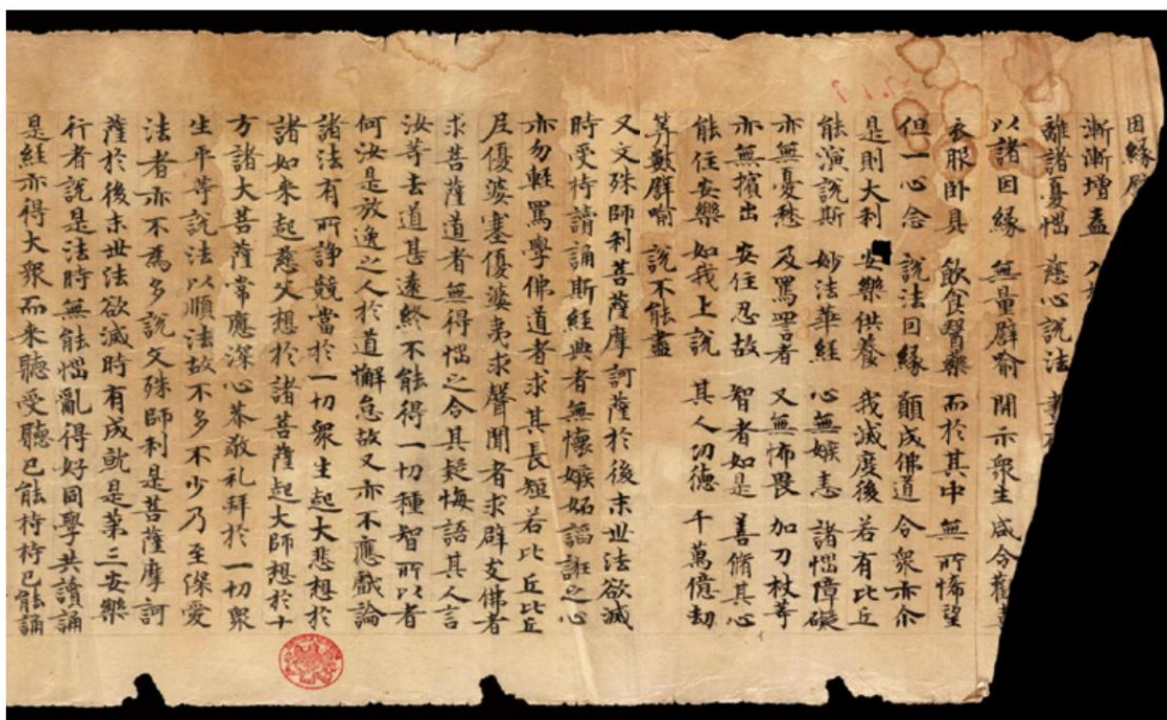 因緣
漸漸增益 入於
離諸憂惱 慈心說法 晝夜
以諸因緣 無量辟喻 開示眾生 咸令歡喜
衣服卧具 飲食醫藥 而於其中 無所悕望
但一心念 說法因緣 願成佛道 令眾亦尒
是則大利 安樂供養 我滅度後 若有比丘
能演說斯 妙法華經 心無嫉恚 諸惱障礙
亦無憂愁 及罵詈者 又無怖畏 加刀杖等
亦無擯出 安住忍故 智者如是 善脩其心
能住安樂 如我上說 其人功德 千萬億劫
筭數辟喻 說不能盡
又文殊師利菩薩摩訶薩於後末世法欲滅
時受持讀誦斯經典者無懷嫉妬諂誑之心
亦勿輕罵學佛道者求其長短若比丘比丘
尼優婆塞優婆夷求聲聞者求辟支佛者
求菩薩道者無得惱之令其疑悔語其人言
汝等去道甚遠終不能得一切種智所以者
何汝是放逸之人於道懈怠故又亦不應戲論
諸法有所諍競當於一切眾生起大悲想於
諸如來起慈父想於諸菩薩起大師想於十
方諸大菩薩常應深心恭敬礼拜於一切眾
生平等說法以順法故不多不少乃至深愛
法者亦不為多說文殊師利是菩薩摩訶
薩於後末世法欲滅時有成就是第三安樂
行者說是法時無能惱亂得好同學共讀誦
是經亦得大眾而来聽受聽已能持持已能誦